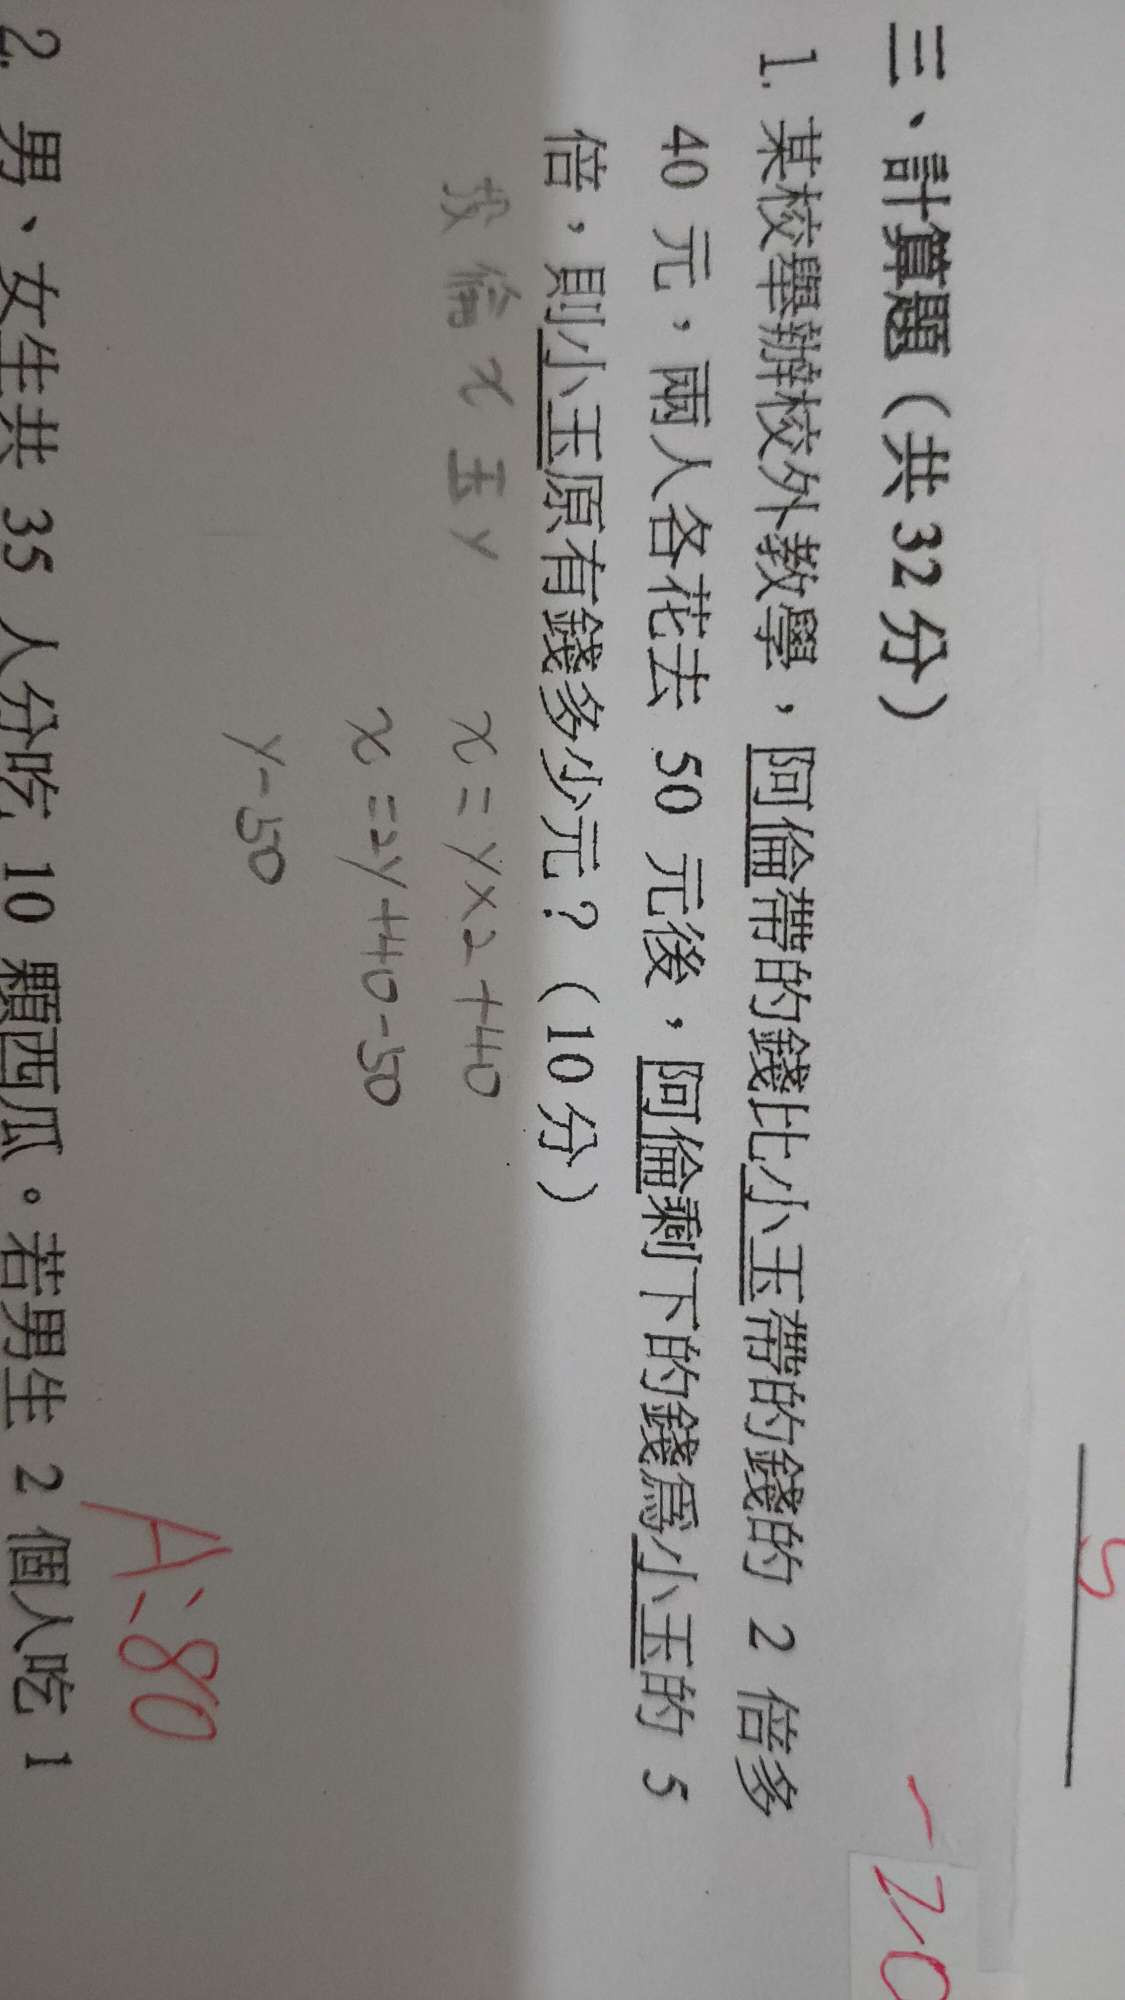 5
三、計算題（共32分）
-20
1. 某校舉辦校外教學，阿倫帶的錢比小玉帶的錢的 2 倍多
40 元，兩人各花去 50 元後，阿倫剩下的錢為小玉的 5
倍，則小玉原有錢多少元？（10分）
倫 x 玉 y
x=y×2+40
x=2y+40-50
y-50
A:80
2. 男、女生共 35 人分吃 10 顆西瓜。若男生 2 個人吃 1